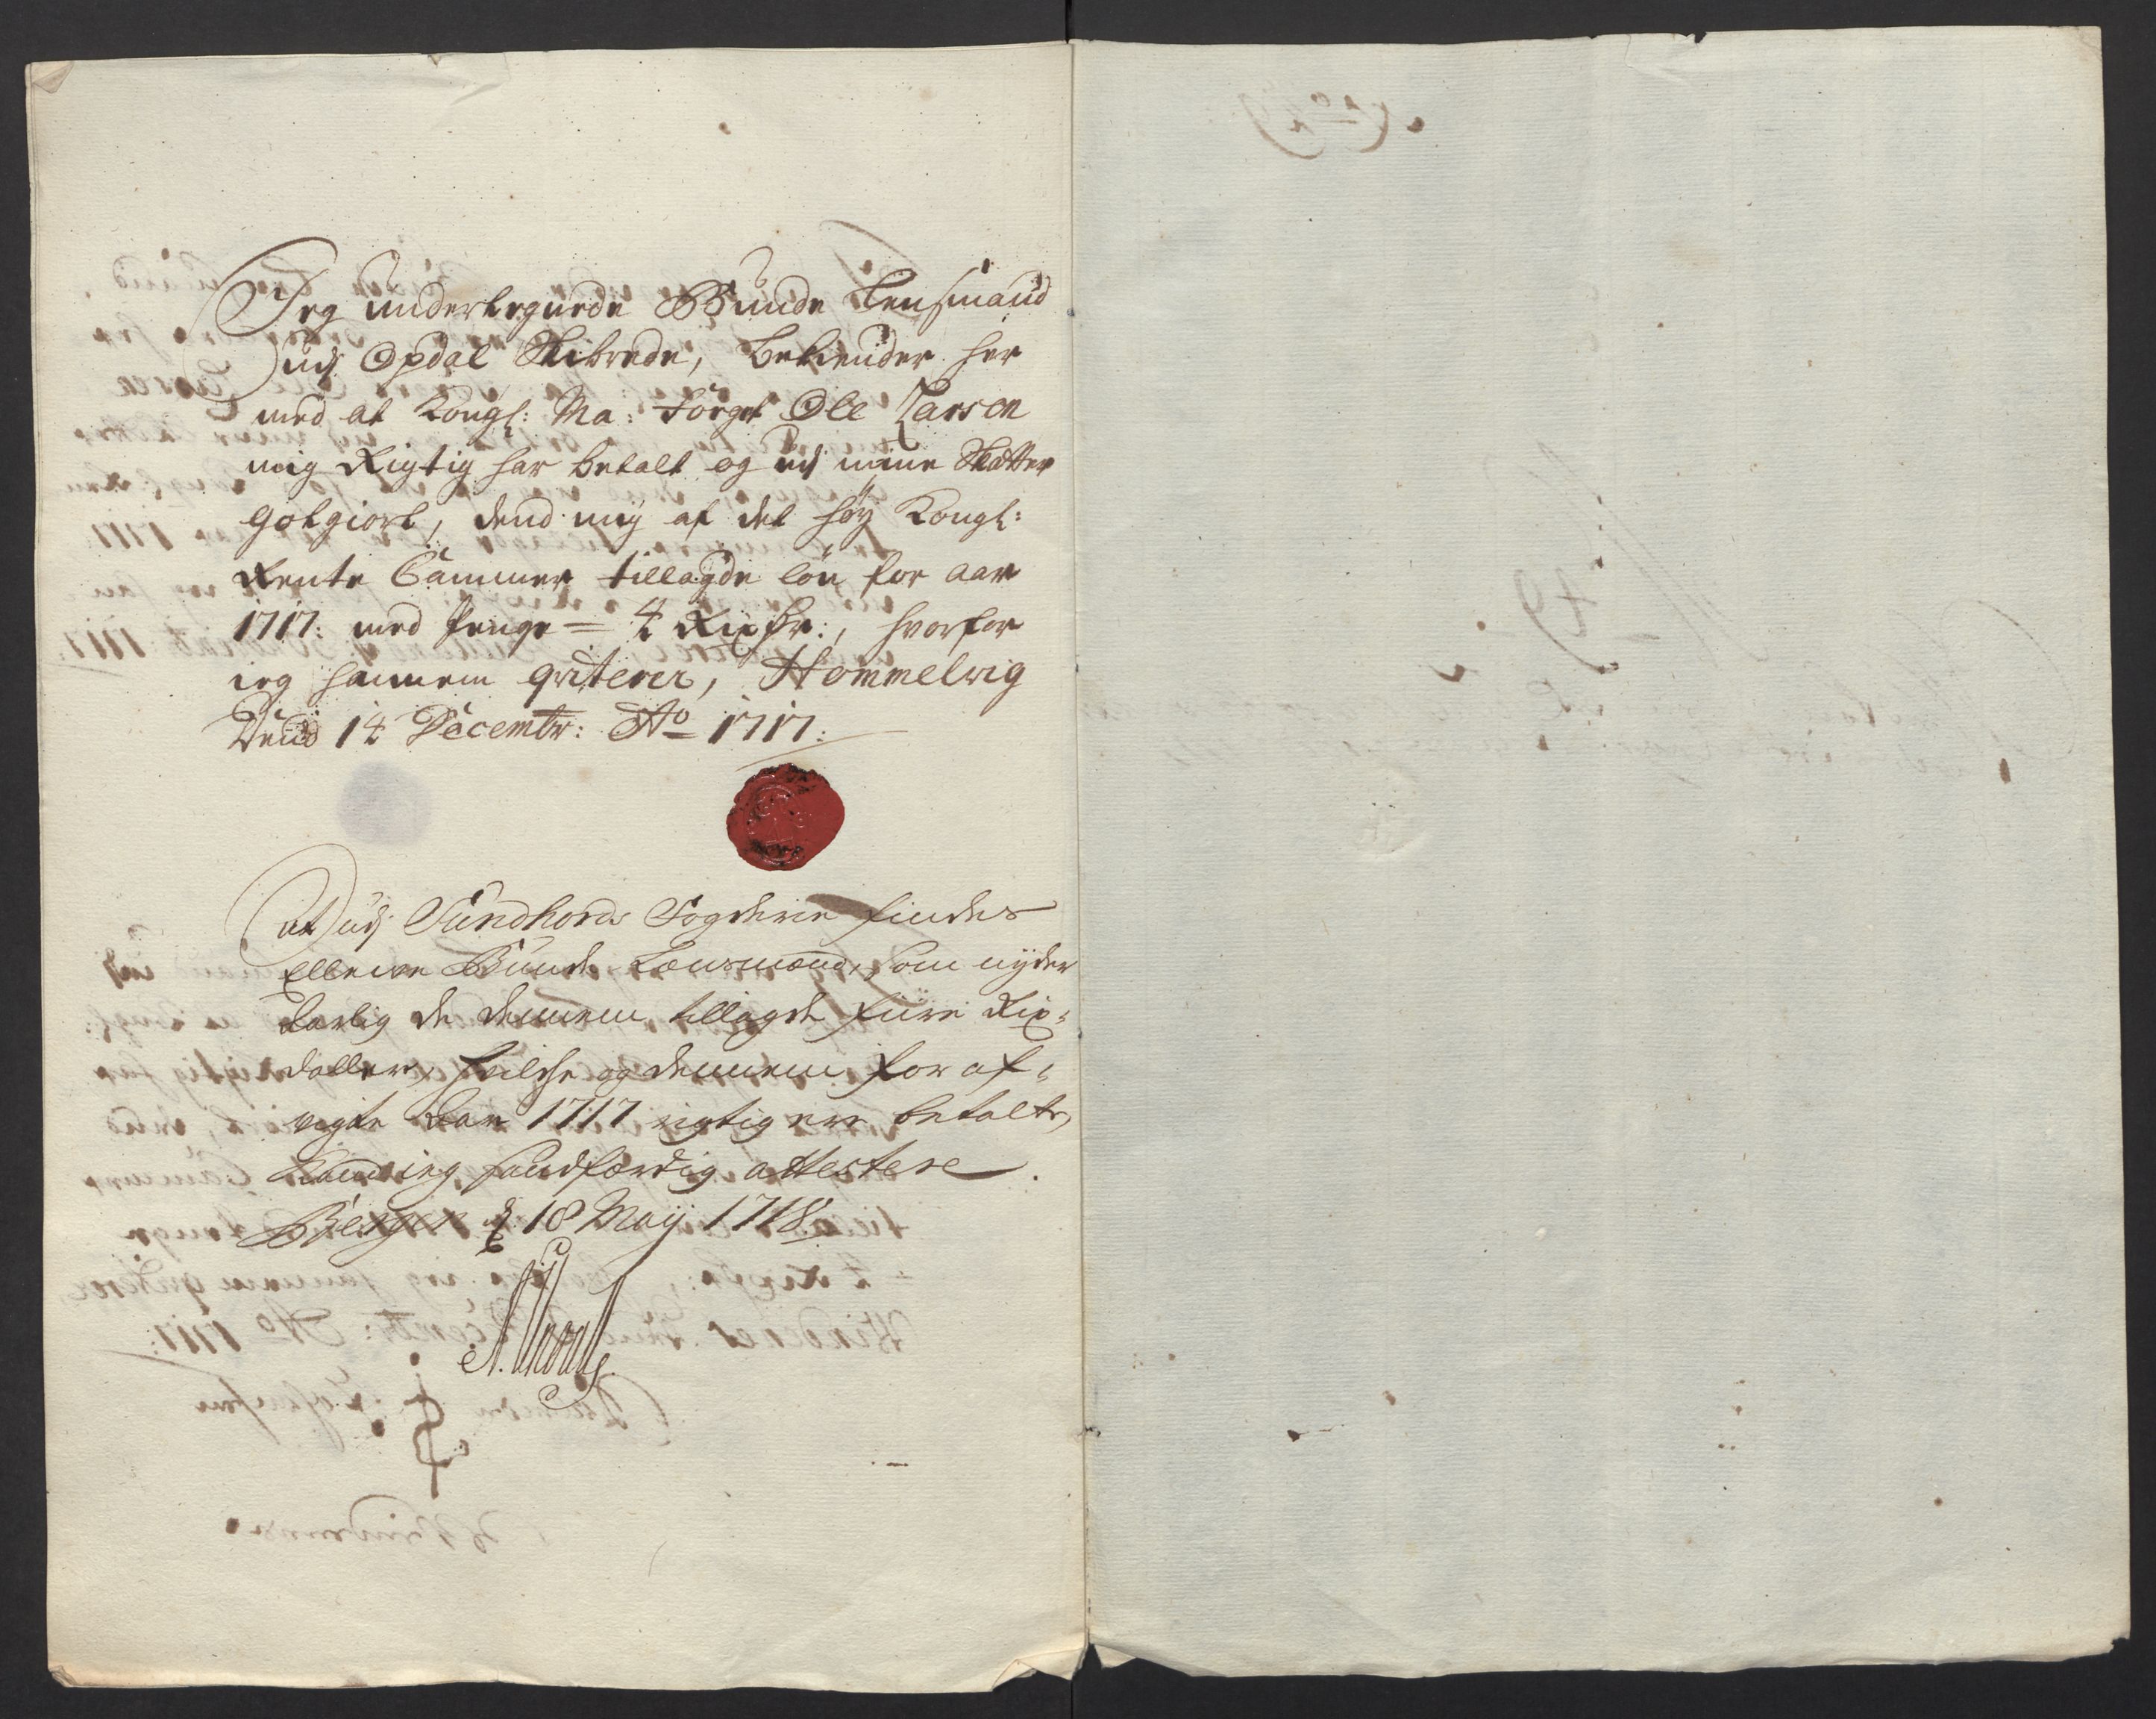 Jeg undertegnede Bunde Lensmand
udj Opdal Skibrede, bekiender her
med at Kongl: Ma: Foget Ole Larsen
mig Rigtig har betalt og udj mine Skatter
gotgiort, dend mig af det høy Kongl:
Rente Cammer tillagde løn for aar
1717: med Penge = 4 Rixdr:, hvorfor
ieg hannem qviterer, Hommelvig
Dend 14 Decembr: Ao 1717:
At udj Sundhords Fogderie findes
Elleve Bunde Lænsmænd, som nyder
Aarlig de dennem tillagde fiire Rix-
daller, hvilche og dennem for af-
vigte Aar 1717 rigtig ere betalte,
Kand ieg sandfærdig attestere.
Bergen d: 18 Maij 1718